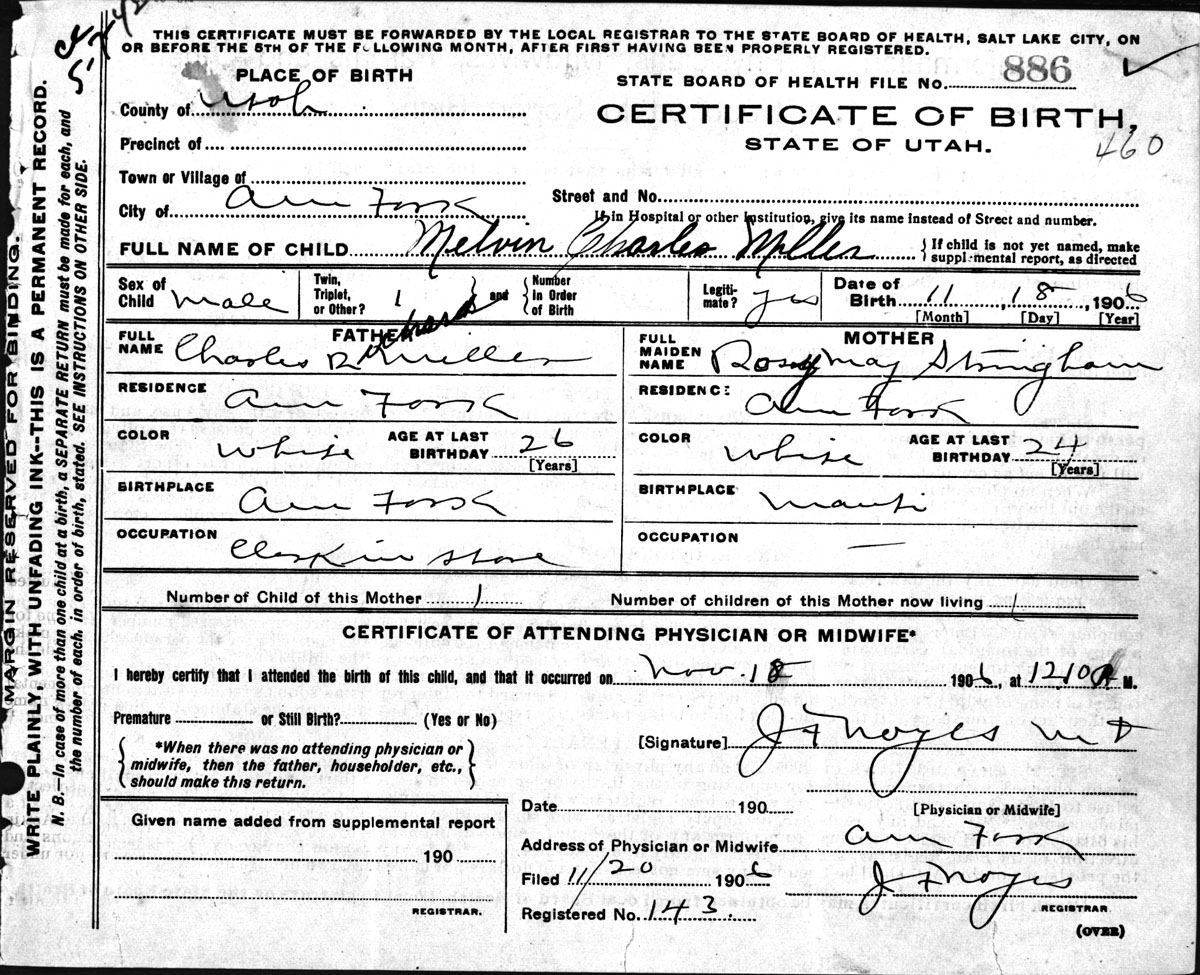 THIS CERTIFICATE MUST BE FORWARDED BY THE LOCAL REGISTRAR TO THE STATE BOARD OF HEALTH, SALT LAKE CITY, ON
OR BEFORE THE 5TH OF THE FOLLOWING MONTH, AFTER FIRST HAVING BEEN PROPERLY REGISTERED.
MARGIN RESERVED FOR BINDING.
WRITE PLAINLY, WITH UNFADING INK--THIS IS A PERMANENT RECORD.
N. B.—In case of more than one child at a birth, a SEPARATE RETURN must be made for each, and
the number of each, in order of birth, stated. SEE INSTRUCTIONS ON OTHER SIDE.
PLACE OF BIRTH
STATE BOARD OF HEALTH FILE No. 886
County of Utah
CERTIFICATE OF BIRTH,
STATE OF UTAH.
460
Precinct of
Town or Village of
City of Am Fork
Street and No.
If in Hospital or other Institution, give its name instead of Street and number.
FULL NAME OF CHILD Melvin Charles Miller
{ If child is not yet named, make
supplemental report, as directed
Sex of Child male
Twin, Triplet, or Other? 1
and
Number in Order of Birth
Legitimate? yes
Date of Birth 11 18 1906
[Month] [Day] [Year]
FATHER
FULL NAME Charles R Miller
MOTHER
FULL MAIDEN NAME Rosy May Stringham
RESIDENCE Am Fork
RESIDENCE Am Fork
COLOR White
AGE AT LAST BIRTHDAY 26
[Years]
COLOR White
AGE AT LAST BIRTHDAY 24
[Years]
BIRTHPLACE Am Fork
BIRTHPLACE Manti
OCCUPATION Clerk in store
OCCUPATION —
Number of Child of this Mother 1
Number of children of this Mother now living 1
CERTIFICATE OF ATTENDING PHYSICIAN OR MIDWIFE*
I hereby certify that I attended the birth of this child, and that it occurred on Nov. 18 1906, at 1210 A M.
Premature or Still Birth? (Yes or No)
[Signature] J F Noyes M D
{ *When there was no attending physician or
midwife, then the father, householder, etc.,
should make this return. }
[Physician or Midwife]
Date 190
Given name added from supplemental report
190
REGISTRAR.
Address of Physician or Midwife Am Fork
Filed 11/20 1906
J F Noyes
REGISTRAR
Registered No. 143.
(OVER)